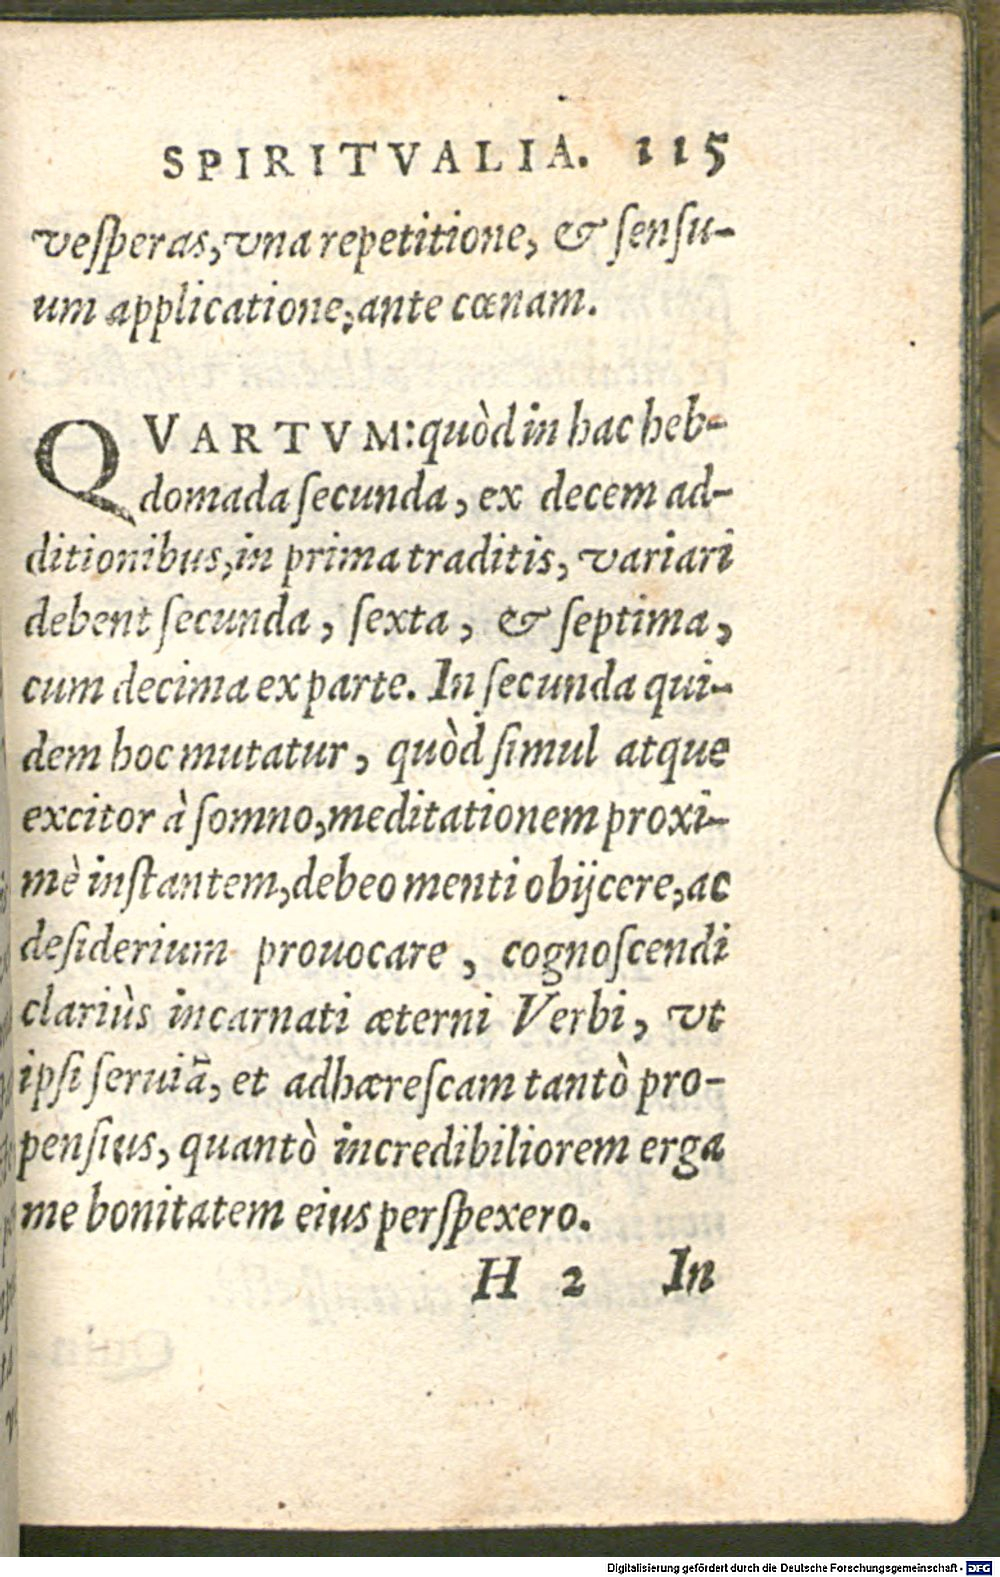 SPIRITVALIA. 115
veſperas, vna repetitione, & ſenſu-
um applicatione, ante cœnam.
QVARTVM: quòd in hac heb-
domada ſecunda, ex decem ad-
ditionibus, in prima traditis, variari
debent ſecunda, ſexta, & ſeptima,
cum decima ex parte. In ſecunda qui-
dem hoc mutatur, quòd ſimul atque
excitor à ſomno, meditationem proxi-
mè inſtantem, debeo menti obijcere, ac
deſiderium prouocare, cognoſcendi
clariùs incarnati æterni Verbi, vt
ipſi ſeruiã, et adhæreſcam tantò pro-
penſius, quantò incredibiliorem erga
me bonitatem eius perſpexero.
H 2 In
Digitalisierung gefördert durch die Deutsche Forschungsgemeinschaft - DFG